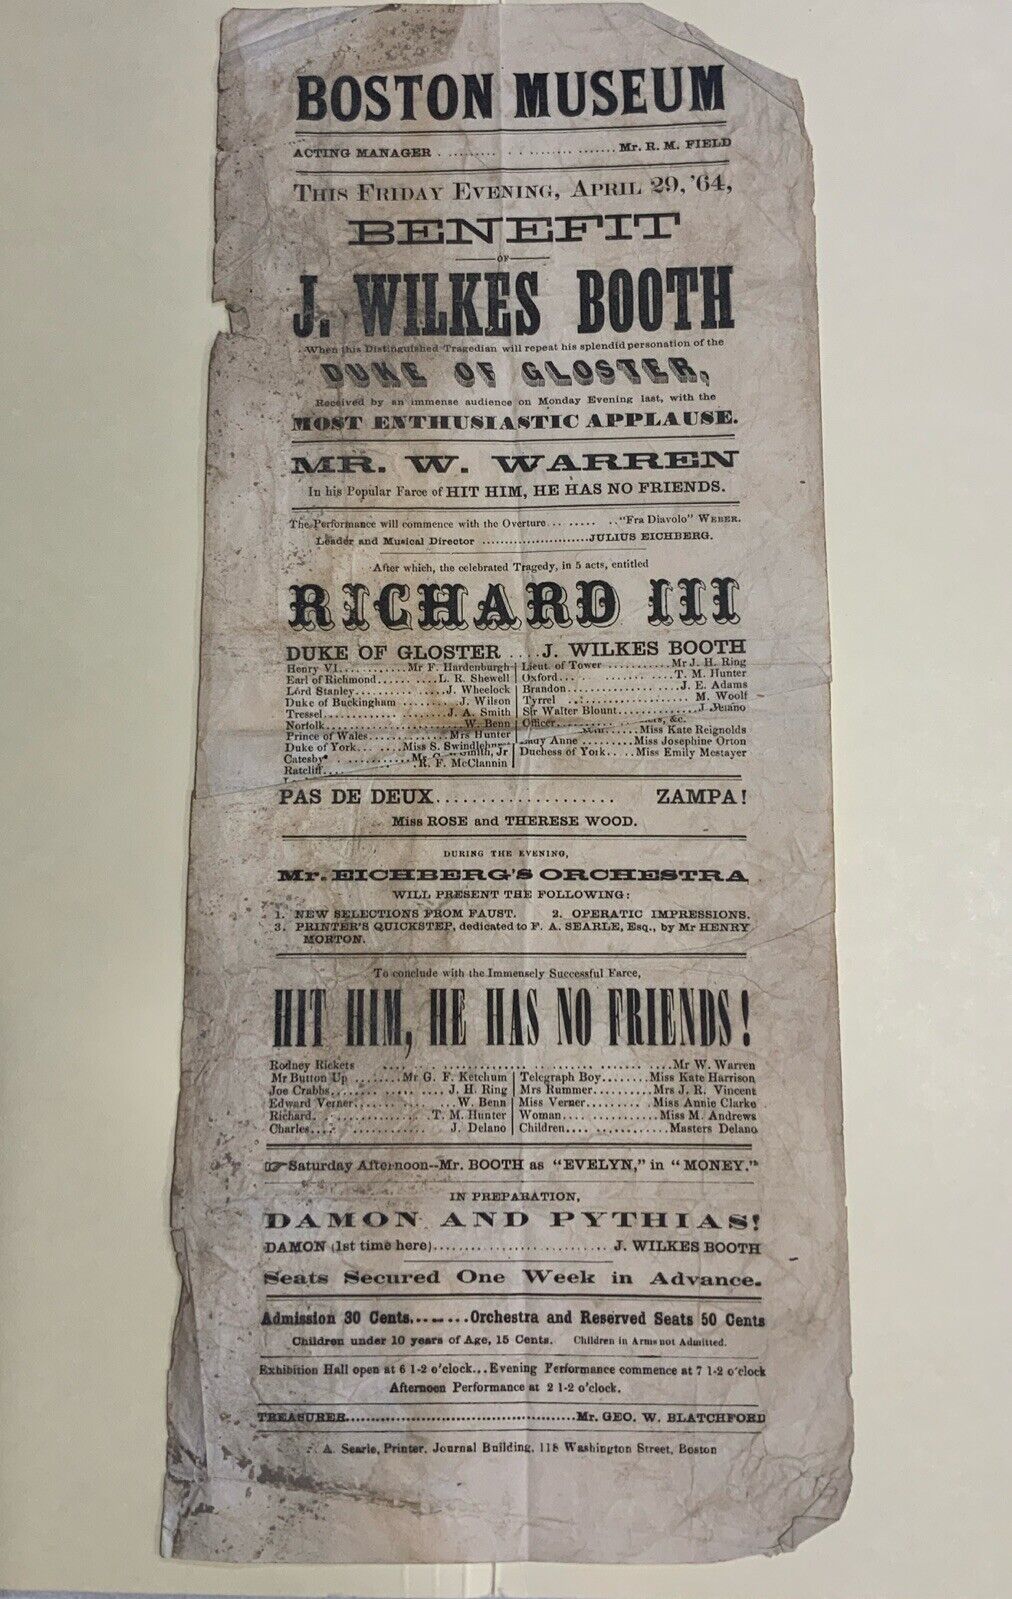 BOSTON MUSEUM
ACTING MANAGER ........................Mr. R. M. FIELD
THIS FRIDAY EVENING, APRIL 29, '64,
BENEFIT
OF
J. WILKES BOOTH
When this Distinguished Tragedian will repeat his splendid personation of the
DUKE OF GLOSTER,
Received by an immense audience on Monday Evening last, with the
MOST ENTHUSIASTIC APPLAUSE.
MR. W. WARREN
In his Popular Farce of HIT HIM, HE HAS NO FRIENDS.
The Performance will commence with the Overture........."Fra Diavolo" WEBER.
Leader and Musical Director ........................JULIUS EICHBERG.
After which, the celebrated Tragedy, in 5 acts, entitled
RICHARD III
DUKE OF GLOSTER ....J. WILKES BOOTH
Henry VI...........Mr F. Hardenburgh
Earl of Richmond.........L. R. Shewell
Lord Stanley...............J. Wheelock
Duke of Buckingham ........J. Wilson
Tressel...................J. A. Smith
Norfolk.....................W. Benn
Prince of Wales............Mrs Hunter
Duke of York......Miss S.
Catesby..............Smith, Jr
Ratcliff...............R. F. McClannin
Lieut. of Tower ...........Mr J. H. Ring
Oxford.....................T. M. Hunter
Brandon..................J. E. Adams
Tyrrel ....................M. Woolf
Sir Walter Blount............J. Delano
Officer................&c.
Miss Kate Reignolds
Anne .........Miss Josephine Orton
Duchess of York.....Miss Emily Mestayer
PAS DE DEUX.................... ZAMPA!
Miss ROSE and THERESE WOOD.
DURING THE EVENING,
Mr. EICHBERG'S ORCHESTRA
WILL PRESENT THE FOLLOWING:
1. NEW SELECTIONS FROM FAUST. 2. OPERATIC IMPRESSIONS.
3. PRINTER'S QUICKSTEP, dedicated to F. A. SEARLE, Esq., by Mr HENRY
MORTON.
To conclude with the Immensely Successful Farce,
HIT HIM, HE HAS NO FRIENDS!
Rodney Rickets ........................................Mr W. Warren
Mr Button Up ........Mr G. F. Ketchum
Joe Crabbs....................J. H. Ring
Edward Verner..................W. Benn
Richard....................T. M. Hunter
Charles.....................J. Delano
Telegraph Boy........Miss Kate Harrison
Mrs Rummer..........Mrs J. R. Vincent
Miss Verner..........Miss Annie Clarke
Woman...............Miss M. Andrews
Children.................Masters Delano
☞Saturday Afternoon--Mr. BOOTH as "EVELYN," in "MONEY."
IN PREPARATION,
DAMON AND PYTHIAS!
DAMON (1st time here)............................J. WILKES BOOTH
Seats Secured One Week in Advance.
Admission 30 Cents........Orchestra and Reserved Seats 50 Cents
Children under 10 years of Age, 15 Cents. Children in Arms not Admitted.
Exhibition Hall open at 6 1-2 o'clock...Evening Performance commence at 7 1-2 o'clock
Afternoon Performance at 2 1-2 o'clock.
TREASURER.............................................Mr. GEO. W. BLATCHFORD
A. Searle, Printer, Journal Building, 118 Washington Street, Boston